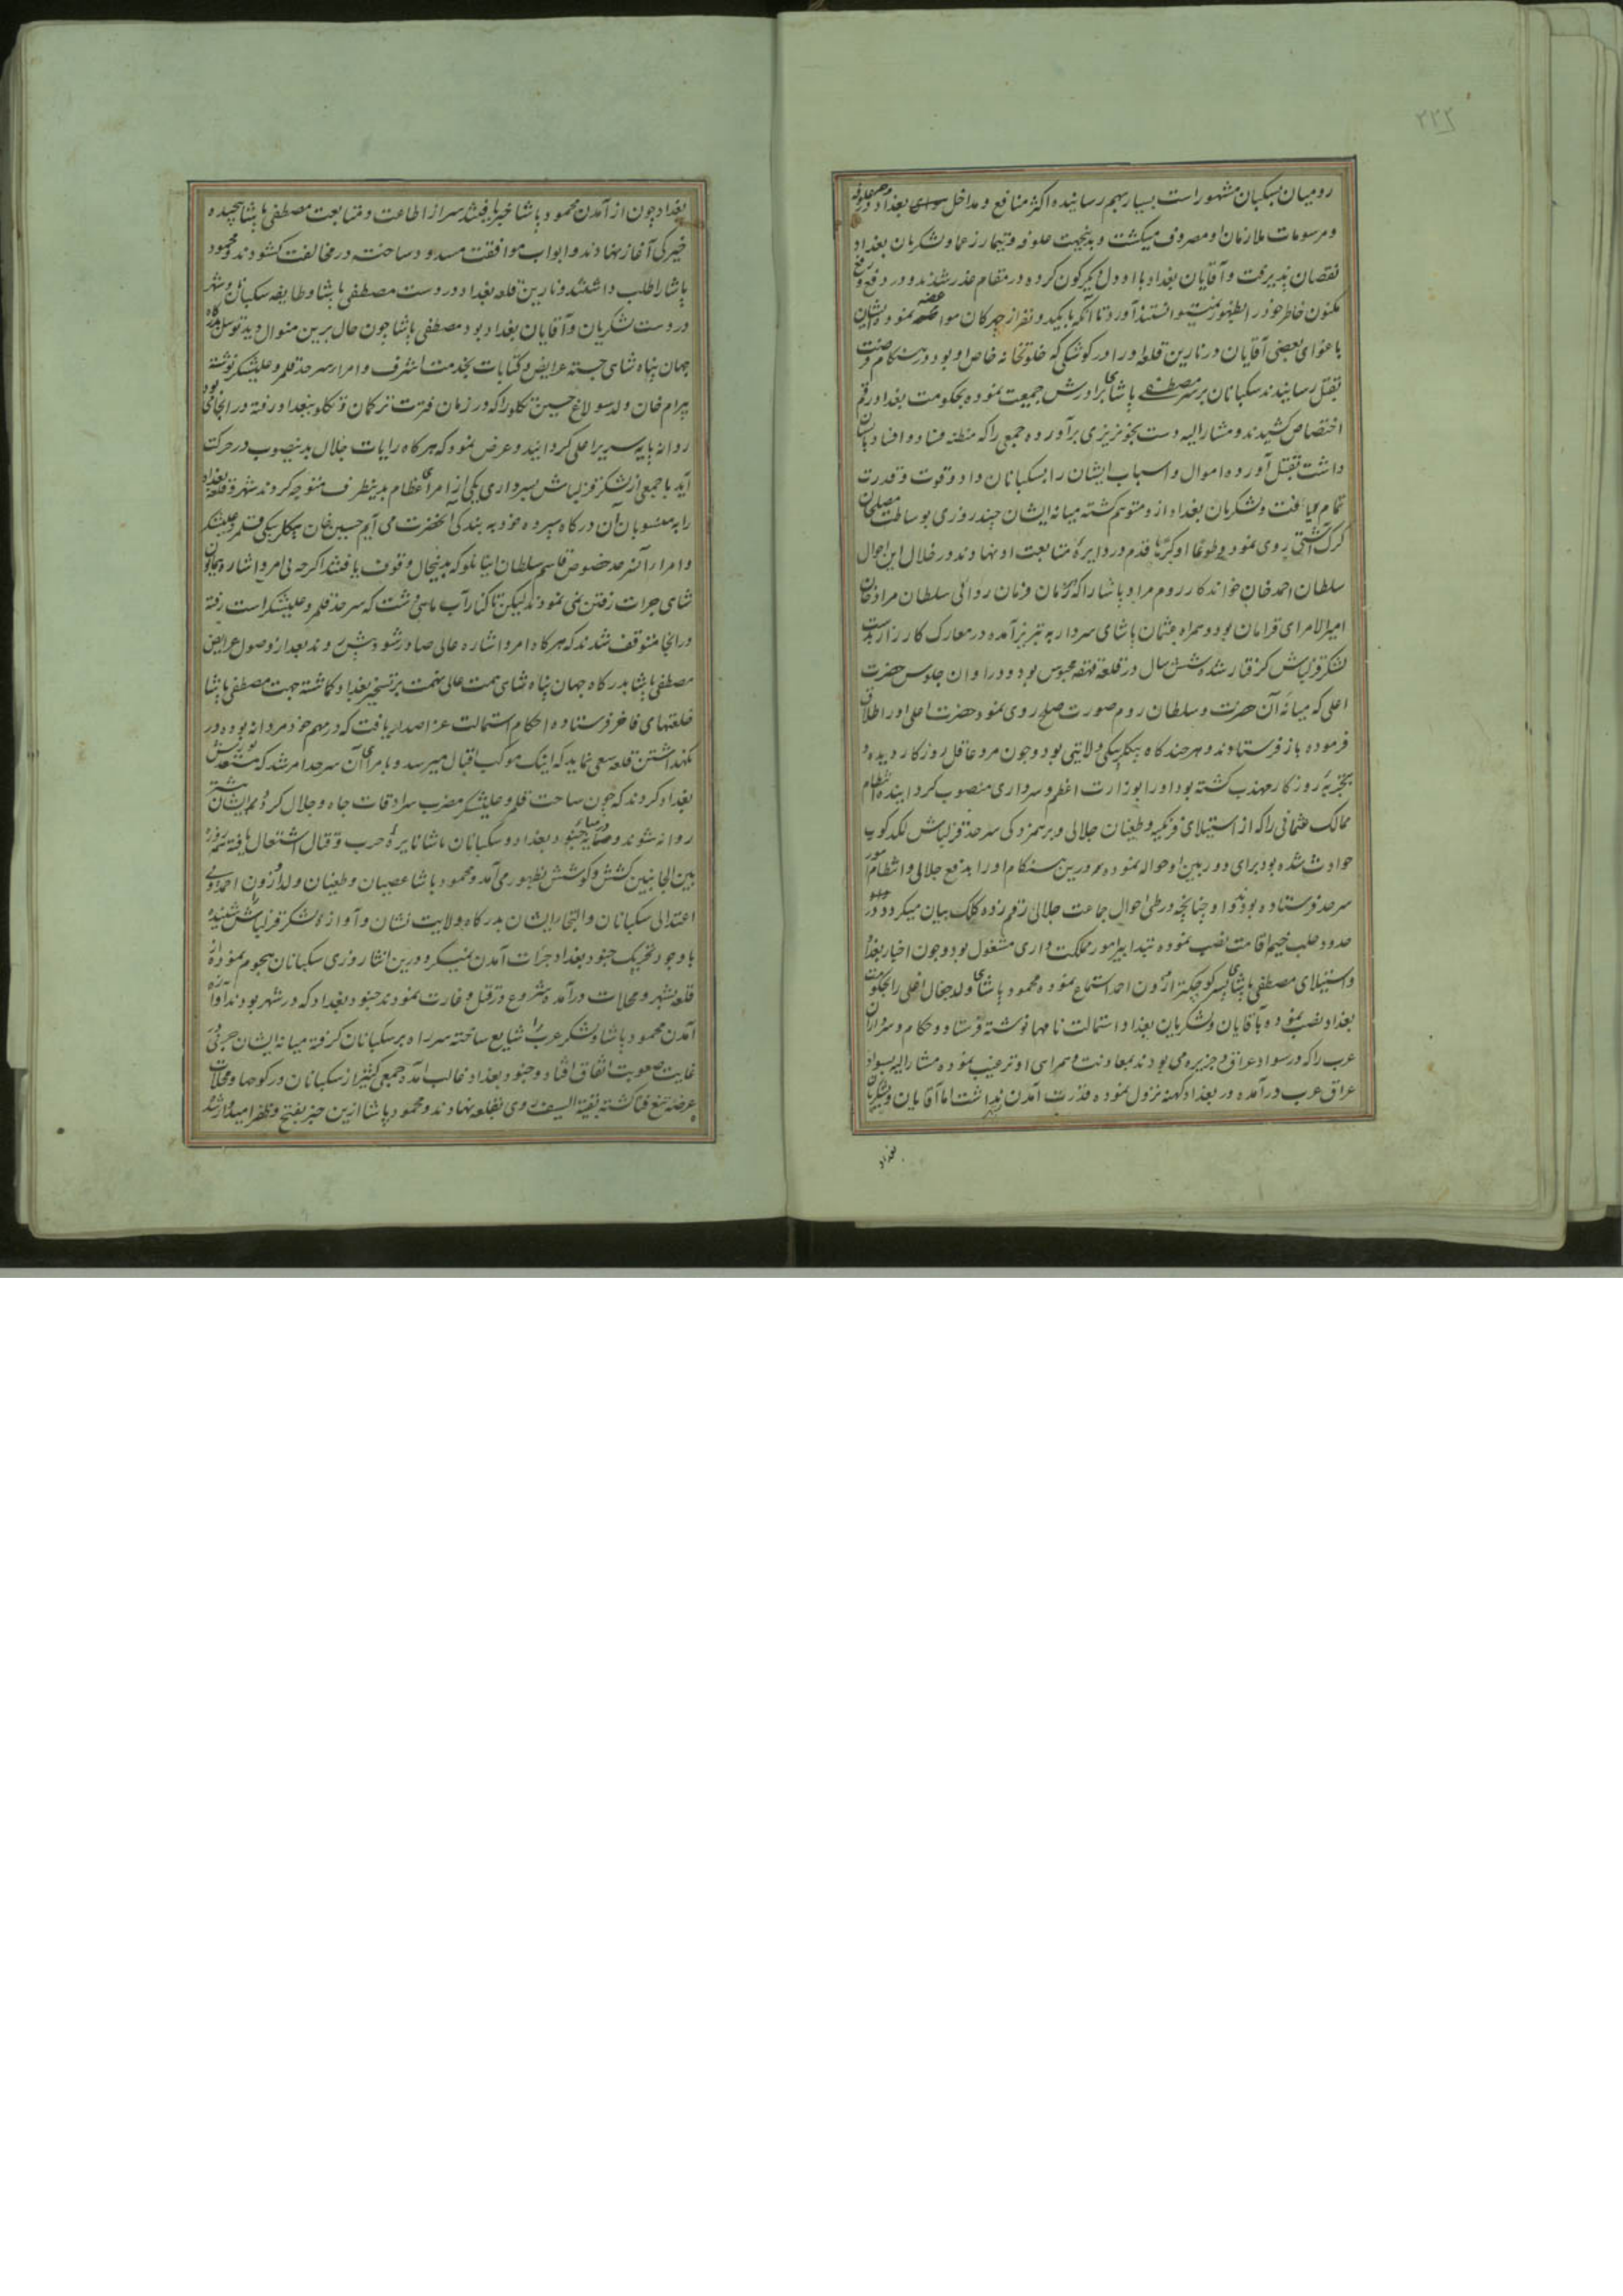 ۲۲۲
رومیان بسکبان مشهور است بسیار بهم رسانیده اکثر منافع و مداخل بغداد در
و مرسومات ملازمان او مصروف میکشت و بدینجهت علوفه و تیمار زعما و لشکریان بغداد
نقصان پذیرفت و آقایان بغداد با او دل دیگرکون کرده در مقام عذر شدند و در دفع
مکنون خاطر خود را بظهور نمیتوانستند آورد تا آنکه با یکدو نفر از چهرکان مواضعه نمود و ایشان
باغوای بعضی آقایان در نارین قلعه او را در کوشکی که خلوتخانه خاص او بود در هنکام فرصت
بقتل رسانیدند سکبانان بر سر مصطفی پاشای برادرش جمعیت نموده بحکومت بغداد رقم
اختصاص کشیدند و مشار الیه دست بخونریزی برآورده جمعی را که مظنه فساد و افساد بایشان
داشت بقتل آورده اموال و اسباب ایشان را بسکبانان داد و قوت و قدرت
تمام یافت و لشکریان بغداد از و متوهم کشته میانه ایشان چند روزی بوساطت مصلحان
کرک آشتی روی نمود و طوعا او کرها قدم در دایره متابعت او نهادند در خلال این احوال
سلطان احمد خان خواندکار روم مراد پاشا را که در زمان فرمان روائی سلطان مراد خان
امیر الامرای قرامان بود و همراه عثمان پاشای سردار به تبریز آمده در معارک کارزار بدست
لشکر قزلباش کرفتار شده شش سال در قلعه قهقهه محبوس بود و در اوان جلوس حضرت
اعلی که میانه آن حضرت و سلطان روم صورت صلح روی نمود حضرت اعلی او را اطلاق
فرموده باز فرستادند و هر چند کاه بیکلربیکی ولایتی بود و چون مرد عاقل روزکار دیده و
بتجربه روزکار مهذب کشته بود او را بوزارت اعظم و سرداری منصوب کردانیده انتظام
ممالک عثمانی را که از استیلای فرنکیه و طغیان جلالی و برهمزدکی سرحد قزلباش لکدکوب
حوادث شده بود برای دوربین او حواله نموده درین هنکام او را بدفع جلالی و انتظام امور
سرحد فرستاده بودند و او چنانچه در طی احوال جماعت جلالی رقم زده کلک بیان میکردد در
حدود حلب خیم اقامت نصب نموده بتدابیر امور مملکت داری مشغول بود و چون اخبار بغداد
و استیلای مصطفی پاشای پسر کوچکتر ازون احمد استماع نموده محمود پاشای ولد جغال اغلی را بحکومت
بغداد نصب نموده بآقایان و لشکریان بغداد استمالت نامها نوشته فرستاد و حکام و سرداران
عرب را که در سواد عراق و جزیره می بودند بمعاونت و همراهی او ترغیب نموده مشار الیه بسواد
عراق عرب درآمده در بغداد کهنه نزول نموده قدرت آمدن نداشت اما آقایان و لشکریان
بغداد
بغداد چون از آمدن محمود پاشا خبر یافتند سر از اطاعت و متابعت مصطفی پاشا پیچیده
خیرکی آغاز نهادند و ابواب موافقت مسدود ساخته در مخالفت کشودند و محمود
پاشا را طلب داشتند و نارین قلعه بغداد در دست مصطفی پاشا و طایفه سکبانان و شهر
در دست لشکریان و آقایان بغداد بود مصطفی پاشا چون حال برین منوال دید توسل بدرکاه
جهان پناه شاهی جسته عرایض و کتابات بخدمت اشرف و امراء سرحد قلمرو علیشکر نوشته
بیرام خان ولد سولاغ حسین تکلو را که در زمان فترت ترکمان و تکلو ببغداد رفته در انجا می بود
روانه پایه سریر اعلی کردانید و عرض نمود که هر کاه رایات جلال بدینصوب در حرکت
آید با جمعی از لشکر قزلباش بسرداری یکی از امرای عظام بدینطرف متوجه کردند شهر و قلعه بغداد
را به منسوبان آن درکاه سپرده خود به بندکی انحضرت می آیم حسین خان بیکلربیکی قلمرو علیشکر
و امراء آنسرحد خصوص قاسم سلطان ایمانلو که بدینحال وقوف یافتند اکرچه بی امر و اشاره همایون
شاهی جرات رفتن نمی نمودند لیکن تا کنار آب ماهی دشت که سرحد قلمرو علیشکر است رفته
در انجا متوقف شدند که هر کاه امر و اشاره عالی صادر شود پیش روند بعد از وصول عرایض
مصطفی پاشا بدرکاه جهان پناه شاهی همت عالی نهمت بر تسخیر بغداد کماشته جهت مصطفی پاشا
خلعتهای فاخر فرستاده احکام استمالت عز اصدار یافت که در مهم خود مردانه بوده در
نکهداشتن قلعه سعی نماید که اینک موکب اقبال میرسد و بامرای آن سرحد امر شد که مستعد یورش
بغداد کردند که چون ساحت قلمرو علیشکر مضرب سرادقات جاه و جلال کردد ایشان پیشتر
روانه شوند و در میانه جنود بغداد و سکبانان پاشا نایره حرب و قتال اشتعال یافته همه روزه
بین الجانبین کشش و کوشش بظهور می آمد و محمود پاشا عصیان و طغیان ولد ازون احمد و بی
اعتدالی سکبانان و التجا ایشان بدرکاه ولایت نشان و آوازه لشکر قزلباش را شنیده
با وجود تحریک جنود بغداد جرات آمدن نمیکرد درین اثنا روزی سکبانان هجوم نموده از
قلعه بشهر و محلات درآمده شروع در قتل و غارت نمودند جنود بغداد که در شهر بودند آوازه
آمدن محمود پاشا و لشکر عرب را شایع ساخته سر راه بر سکبانان کرفته میانه ایشان حربی
غایت صعوبت اتفاق افتاد و جنود بغداد غالب آمده جمعی کثیر از سکبانان در کوچها و محلات
عرضه تیغ فنا کشته بقیة السیف روی بقلعه نهادند و محمود پاشا ازین خبر بفتح و ظفر امیدوار شده